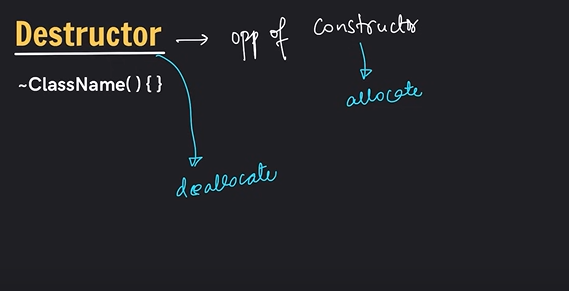 Destructor → opp of constructor
~ClassName( ) { }
allocate
deallocate